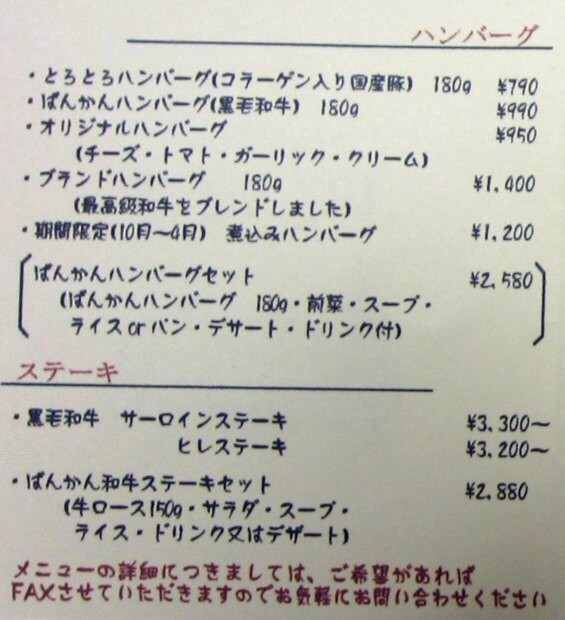 ハンバーグ
・とろとろハンバーグ(コラーゲン入り国産豚) 180g ¥790
・ばんかんハンバーグ(黒毛和牛) 180g ¥990
・オリジナルハンバーグ ¥950
(チーズ・トマト・ガーリック・クリーム)
・ブランドハンバーグ 180g ¥1,400
(最高級和牛をブレンドしました)
・期間限定(10月〜4月) 煮込みハンバーグ ¥1,200
ばんかんハンバーグセット ¥2,580
(ばんかんハンバーグ 180g・前菜・スープ・
ライスorパン・デザート・ドリンク付)
ステーキ
・黒毛和牛 サーロインステーキ ¥3,300〜
ヒレステーキ ¥3,200〜
・ばんかん和牛ステーキセット ¥2,880
(牛ロース150g・サラダ・スープ・
ライス・ドリンク又はデザート)
メニューの詳細につきましては、ご希望があれば
FAXさせていただきますのでお気軽にお問い合わせください